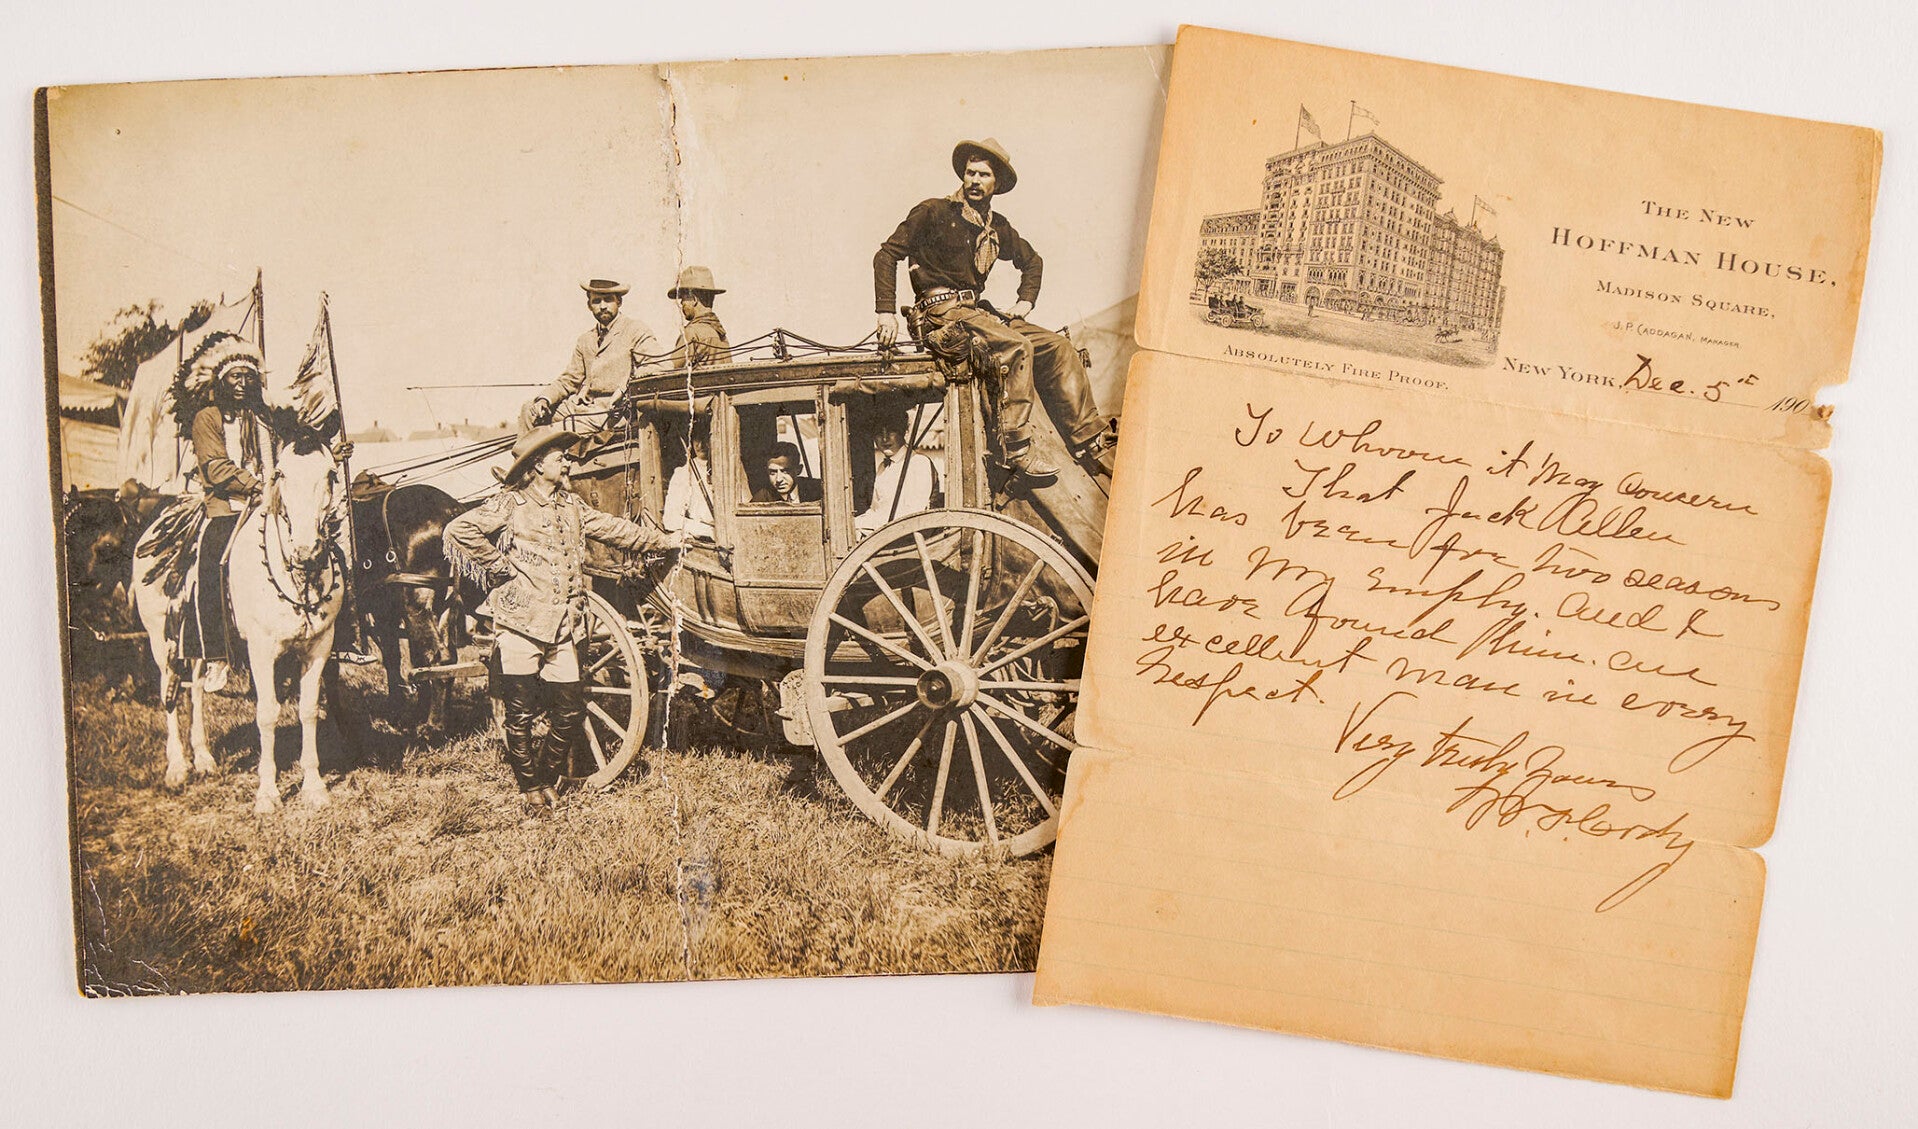 THE NEW
HOFFMAN HOUSE,
MADISON SQUARE,
J. P. CADDAGAN, MANAGER
ABSOLUTELY FIRE PROOF.
NEW YORK, Dec. 5th 190
To Whom it May Concern
That Jack Allen
has been for two seasons
in my Employ. and I
have found him. an
excellent man in every
respect.
Very truly Yours
W. F. Cody